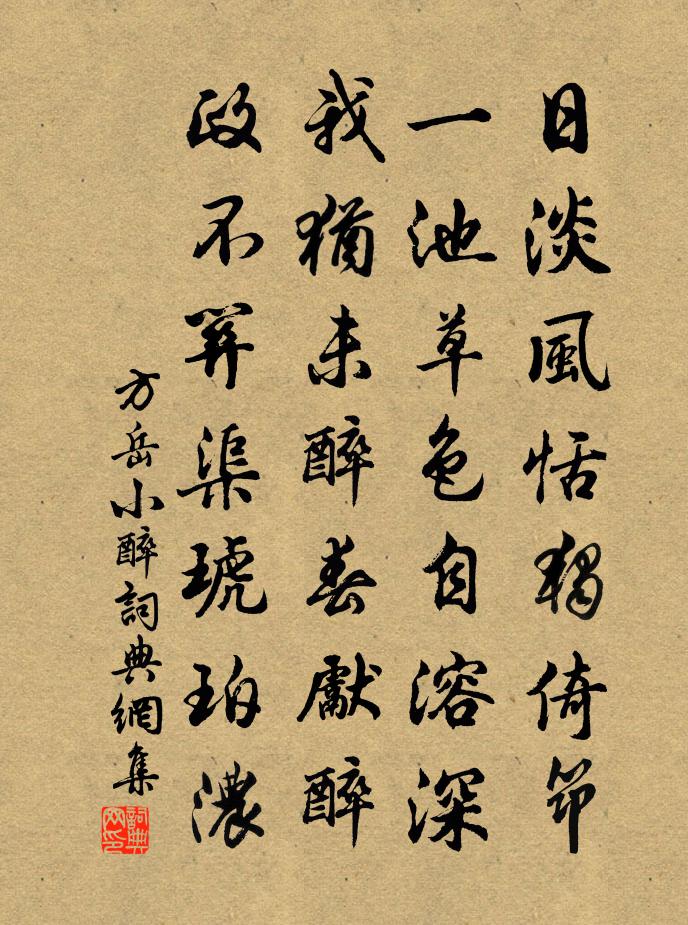 日淡風恬獨倚筇
一池草色自溶深
我猶未醉春獻醉
政不關渠琥珀濃
方岳小醉詞典網集
詞典网印